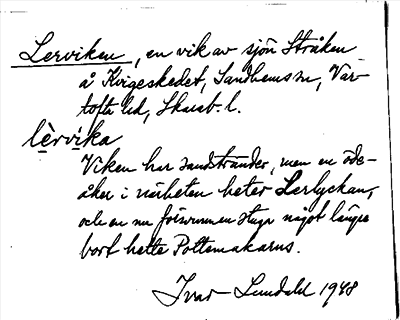 Lerviken, en vik av sjön Stråken
å Kvigeskedet, Sandhems sn, Var-
tofta hd, Skarab. l.
lèrvika
Viken har sandstränder, men en öde-
åker i närheten heter Lerlyckan,
och en nu försvunnen stuga något längre
bort hette Pottemakarns.
Ivar Lundahl 1948